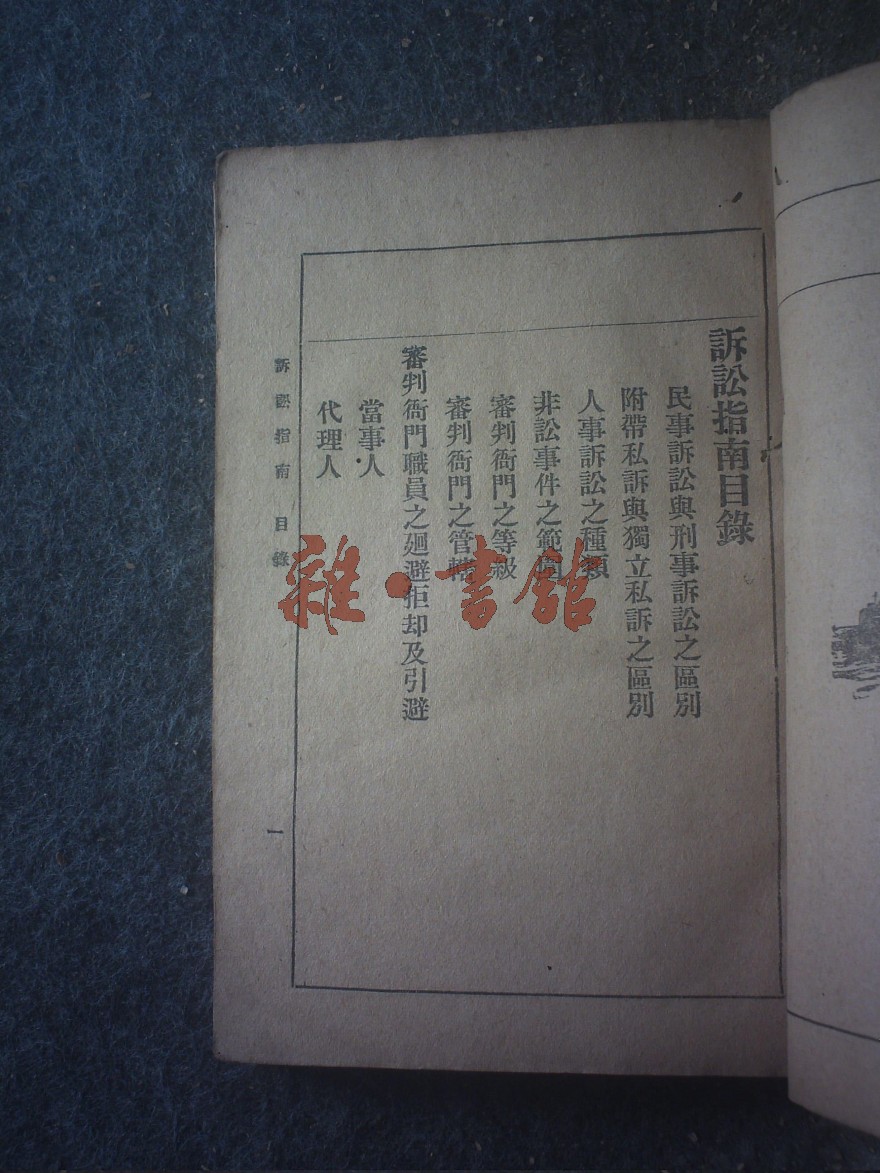 訴訟指南目錄
民事訴訟與刑事訴訟之區別
附帶私訴與獨立私訴之區別
人事訴訟之種類
非訟事件之範圍
審判衙門之等級
審判衙門之管轄
審判衙門職員之廻避拒却及引避
當事人
代理人
訴訟指南 目錄
一
雜·書館